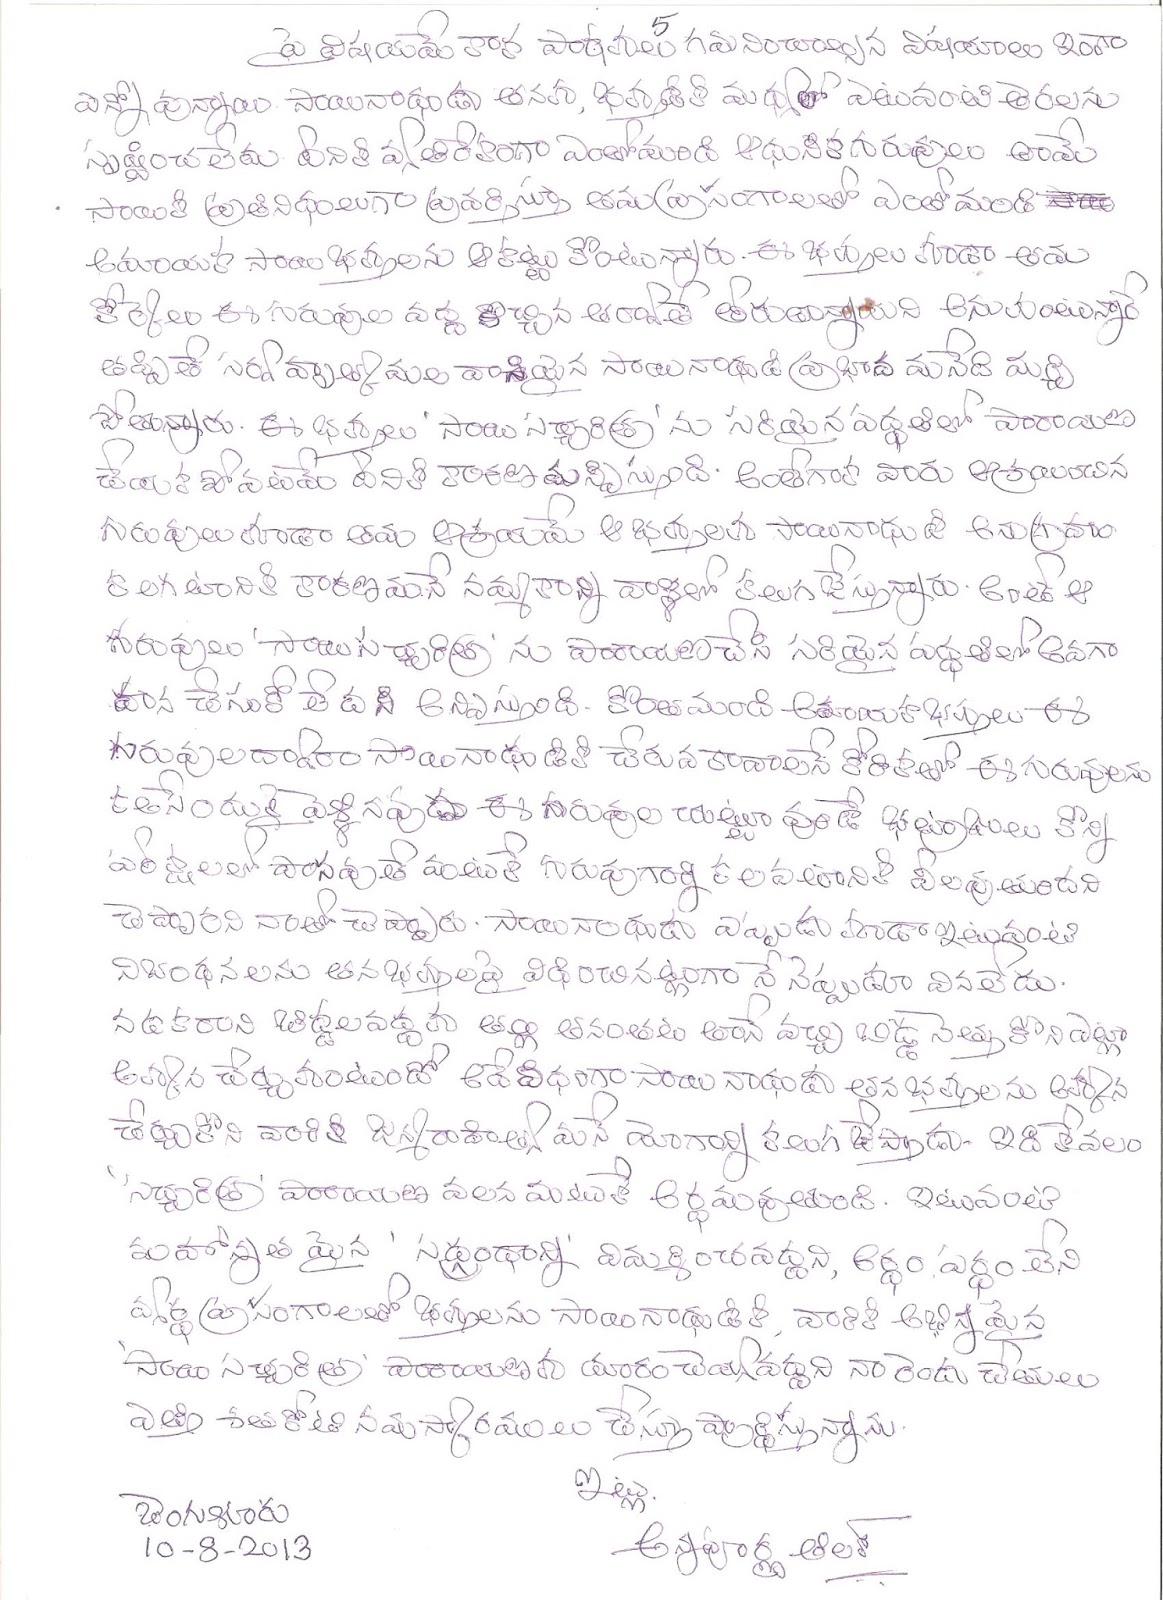 5
పై విషయమే కాక పాఠకులు గమనించాల్సిన విషయాలు ఇంకా
ఎన్నో వున్నాయి. సాయినాథుడు తనకు, భక్తులకి మధ్యలో ఎటువంటి తెరలను
సృష్టించలేదు. దీనికి వ్యతిరేకంగా ఎంతోమంది ఆధునిక గురువులు తామే
సాయికి ప్రతినిధులుగా ప్రవర్తిస్తూ తమ ప్రసంగాలతో ఎంతోమంది
అమాయక సాయి భక్తులను ఆకట్టు కొంటున్నారు. ఈ భక్తులు కూడా తమ
కోర్కెలు ఈ గురువుల వద్దకొచ్చిన తరువాతే తీరుతున్నాయని అనుకుంటున్నారే
తప్పితే సర్వవ్యాప్తి సాయినాథుడి ప్రభావ మనేది మర్చి
పోతున్నారు. ఈ భక్తులు 'సాయి సచ్చరిత్ర' ను సరియైన పద్ధతిలో పారాయణ
చేయకపోవటమే దీనికి కారణమనిపిస్తుంది. అంతేగాక వారు ఆశ్రయించిన
గురువులు కూడా తమ ఆశ్రయమే ఆ భక్తులకు సాయినాథుడి అనుగ్రహం
కలగటానికి కారణమనే నమ్మకాన్ని వాళ్లలో కలుగజేస్తున్నారు. అంటే ఆ
గురువులు 'సాయిసచ్చరిత్ర' ను పారాయణచేసి సరియైన పద్ధతిలో అవగా
హన చేసుకోలేదని అన్పిస్తుంది. కొంతమంది అమాయక భక్తులు ఈ
గురువులద్వారా సాయినాథుడికి చేరువకావాలనే కోరికతో ఈ గురువులను
కలిసేందుకై వెళ్లినపుడు ఈ గురువుల చుట్టూ వుండే భక్తులు కొన్ని
పరీక్షలలో పాసవుతే మటుకే గురువుగార్ని కలవటానికి వీలవుతుందని
చెప్పారని నాతో చెప్పారు. సాయినాథుడు ఎప్పుడు కూడా ఇటువంటి
నిబంధనలను తన భక్తులపై విధించినట్లుగా నేనెప్పుడూ వినలేదు.
నడకరాని బిడ్డలవద్దకు తల్లి తనంతట తానే వచ్చి బిడ్డనెత్తుకొని ఎట్లా
అక్కున చేర్చుకుంటుందో అదేవిధంగా సాయినాథుడు తన భక్తులను అక్కున
చేర్చుకొని వారికి జన్మరాహిత్యమనే యోగాన్ని కలుగజేస్తాడు. ఇది కేవలం
'సచ్చరిత్ర' పారాయణ వలన మటుకే అర్థమవుతుంది. ఇటువంటి
మహోన్నతమైన 'సద్గ్రంథాన్ని' విమర్శించవద్దని, అర్థం పర్థం లేని
వ్యర్థ ప్రసంగాలతో భక్తులను సాయినాథుడికి, వారికి అభిన్నమైన
'సాయి సచ్చరిత్ర' పారాయణకు దూరంచెయ్యవద్దని నా రెండు చేతులు
ఎత్తి శతకోటి నమస్కారములు చేస్తూ ప్రార్థిస్తున్నాను.
ఇట్లు.
బెంగుళూరు
10-8-2013
అన్నపూర్ణ తిలక్